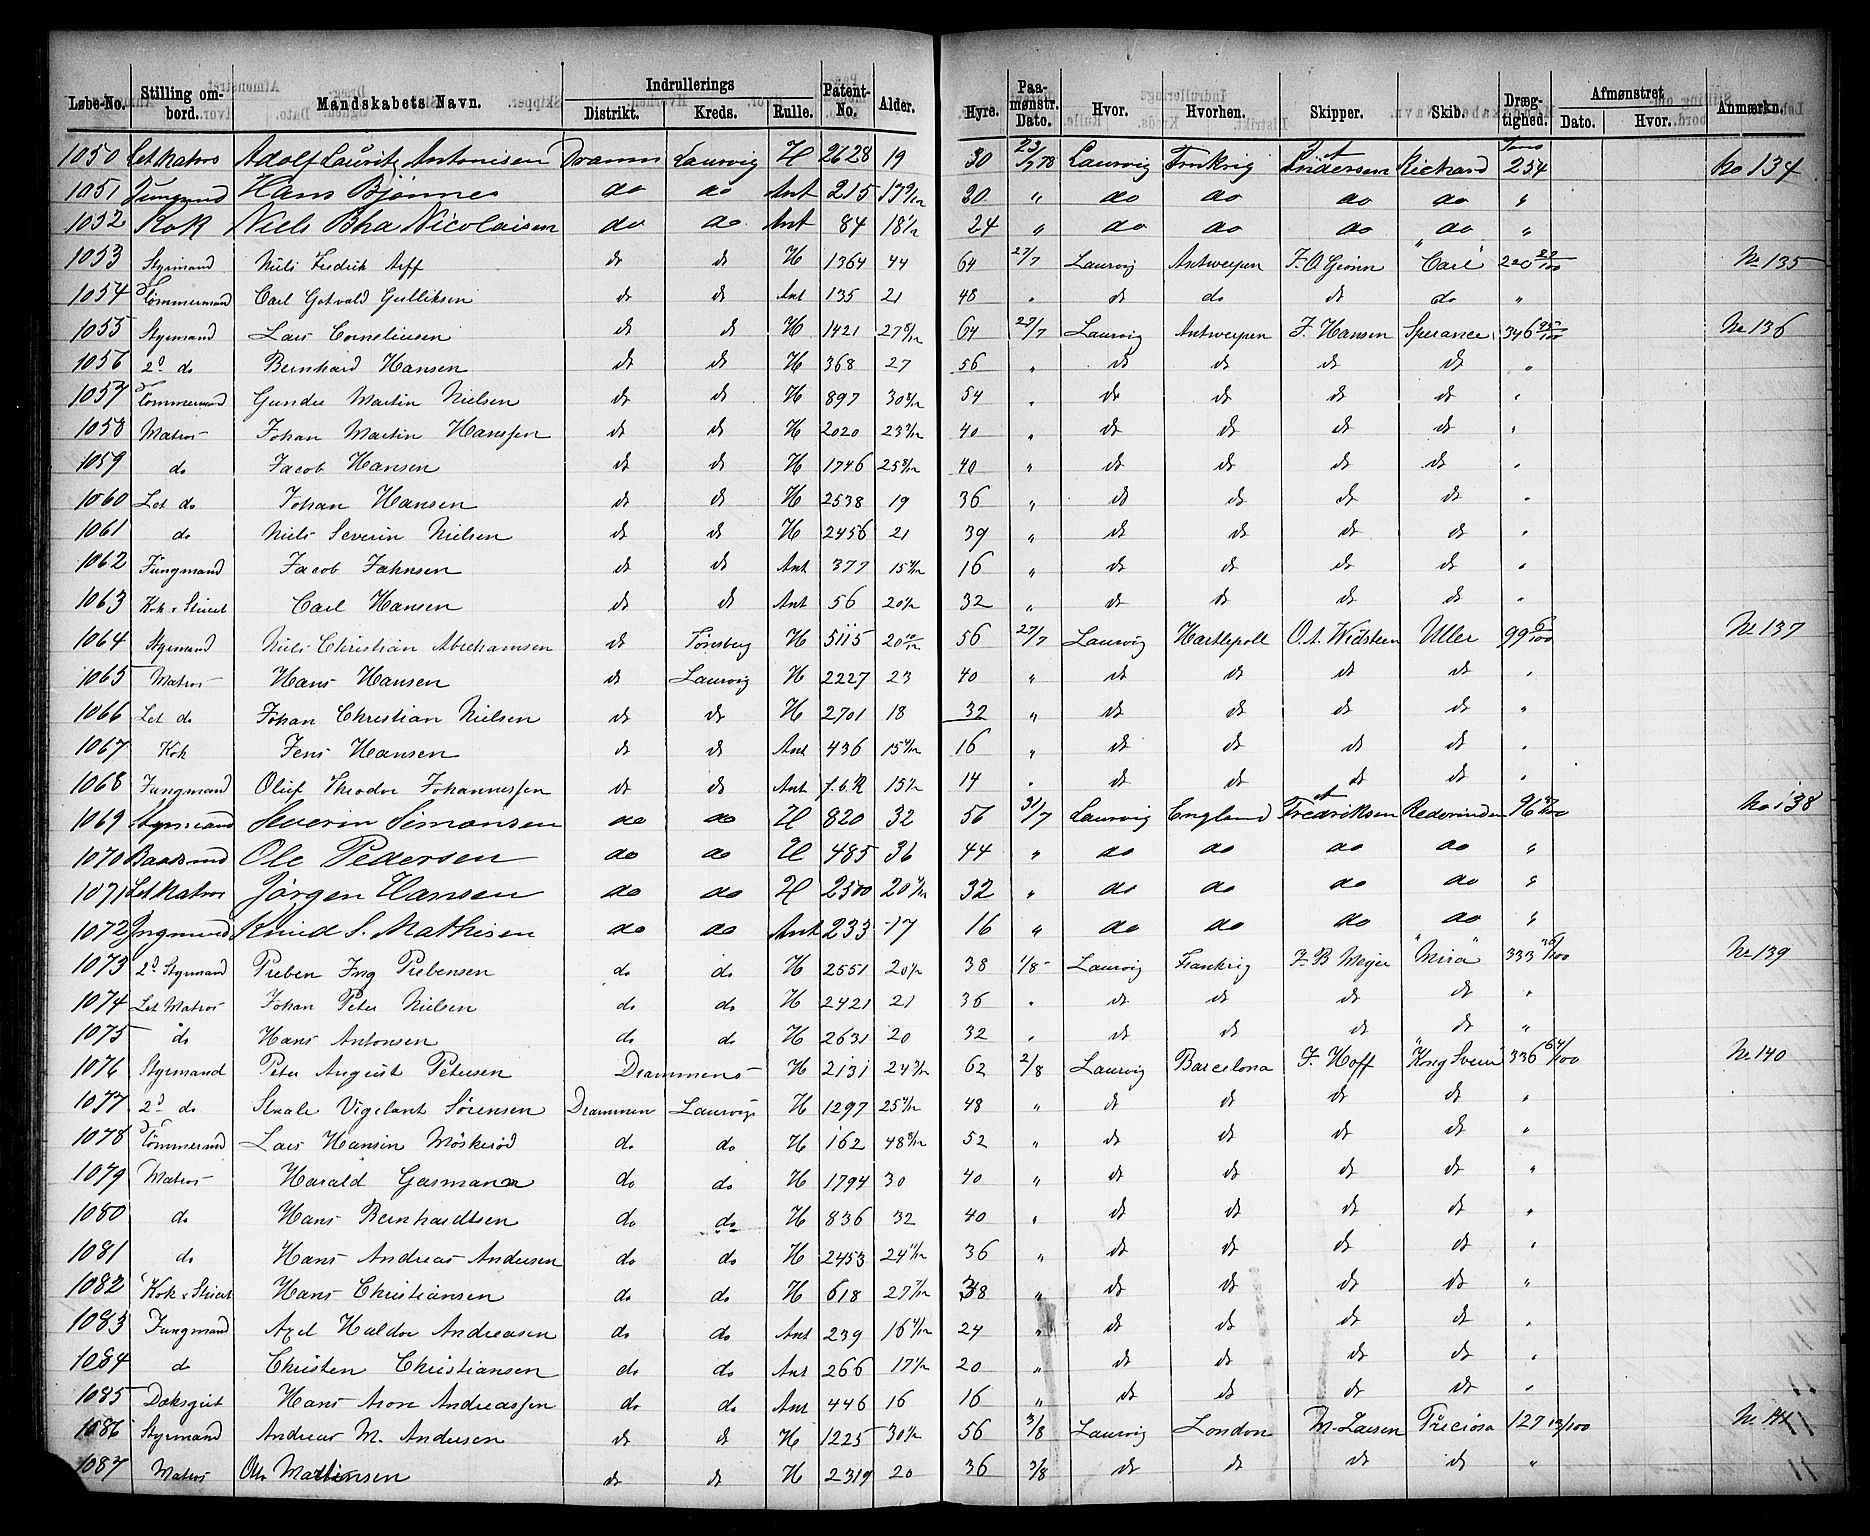 Løbe-No. Stilling ombord. Mandskabets Navn. Indrullerings Distrikt. Kreds. Rulle. Patent-No. Alder. Hyre. Paamønstr. Dato. Hvor. Hvorhen. Skipper. Skib. Drægtighed. Afmønstret Dato. Hvor. Anmærkn.
1050 Let Matros Adolf Lauritz Antonisen Dramm Laurvig H 2628 19 30 23/7 78 Laurvig Frnkrig Andersen Richard 254 No 134
1051 Jungmnd Hans Bjønnes do do Ant 215 17 9/12 20 " do do do do "
1052 Kok Niels Bha Nicolaisen do do Ant 84 18 1/2 24 " do do do do "
1053 Styrmand Niels Fredrik Arff do do H 1364 44 64 27/7 Laurvig Antwerpen F. O. Grønn "Carl" 220 No 135
1054 Tømmermand Carl Gotvald Gulliksen do do Ant 135 21 48 " do do do do "
1055 Styrmand Lars Corneliusen do do H 1421 27 64 27/7 Laurvig Antwerpen F. Hansen Sperance 346 No 136
1056 2d do Bernhard Hansen do do H 368 27 56 " do do do do "
1057 Tømmermand Gunder Martin Nielsen do do H 897 30 54 " do do do do "
1058 Matros Johan Martin Hanssen do do H 2020 23 40 " do do do do "
1059 do Jacob Hansen do do H 1746 25 40 " do do do do "
1060 Let do Johan Hansen do do H 2538 19 36 " do do do do "
1061 do Niels Severin Nielsen do do H 2456 21 39 " do do do do "
1062 Jungmand Jacob Jahnsen do do Ant 377 15 16 " do do do do "
1063 Kok & Stuert Carl Hansen do do Ant 56 20 1/2 32 " do do do do "
1064 Styrmand Niels Christian Abrahamsen do Tønsberg H 5115 20 10/12 56 27/7 Laurvig Hartlepoll O. A. Widsteen Uller 99 No 137
1065 Matros Hans Hansen do Laurvig H 2227 23 40 " do do do do "
1066 Let do Johan Christian Nielsen do do H 2701 18 32 " do do do do "
1067 Kok Jens Hansen do do Ant 436 15 16 " do do do do "
1068 Jungmand Oluf Theodor Johannessen do do Ant 15 1/2 14 " do do do do "
1069 Styrmand Severin Simonsen do do H 820 32 56 31/7 Laurvig England Fredriksen Rederinden 96 No 138
1070 Baadsmd Ole Pedersen do do H 485 36 44 " do do do do "
1071 Let Matros Jørgen Hansen do do H 2500 20 32 " do do do do "
1072 Jngmand Knud S. Mathisen do do Ant 233 17 16 " do do do do "
1073 2d Styrmand Preben Ing Prebensen do do H 2551 20 1/2 38 1/8 Laurvig Frankrig F. B Meyer "Mira" 333 No 139
1074 Let Matros Johan Peter Nielsen do do H 2421 21 36 " do do do do "
1075 do Hans Antonsen do do H 2631 20 32 " do do do do "
1076 Styrmand Peter August Petersen Drammens H 2131 24 62 2/8 Laurvig Barcelona F. Hoff "Kong Sverre" 336 64/100 No 140
1077 2d do Staale Vigelant Sørensen Drammen Laurvigs H 1297 25 48 " do do do do "
1078 Tømmermd Lars Hansen Møskerød do do H 162 48 52 " do do do do "
1079 Matros Harald Gasmann do do H 1794 30 40 " do do do do "
1080 do Hans Bernhardtsen do do H 836 32 40 " do do do do "
1081 do Hans Andreas Andersen do do H 2453 24 36 " do do do do "
1082 Kok & Stuert Hans Christiansen do do H 618 27 38 " do do do do "
1083 Jungmand Axel Haldor Andreasen do do Ant 239 16 24 " do do do do "
1084 do Christen Christiansen do do Ant 266 17 1/2 20 " do do do do "
1085 Daksgut Hans Aron Andreassen do do Ant 446 16 16 " do do do do "
1086 Styrmand Andreas M. Andersen do do H 1225 30 1/2 56 3/8 Laurvig London M. Larsen Preciosa 127 13/100 No 141
1087 Matros Otto Martinsen do do H 2319 20 36 3/8 do do do do "